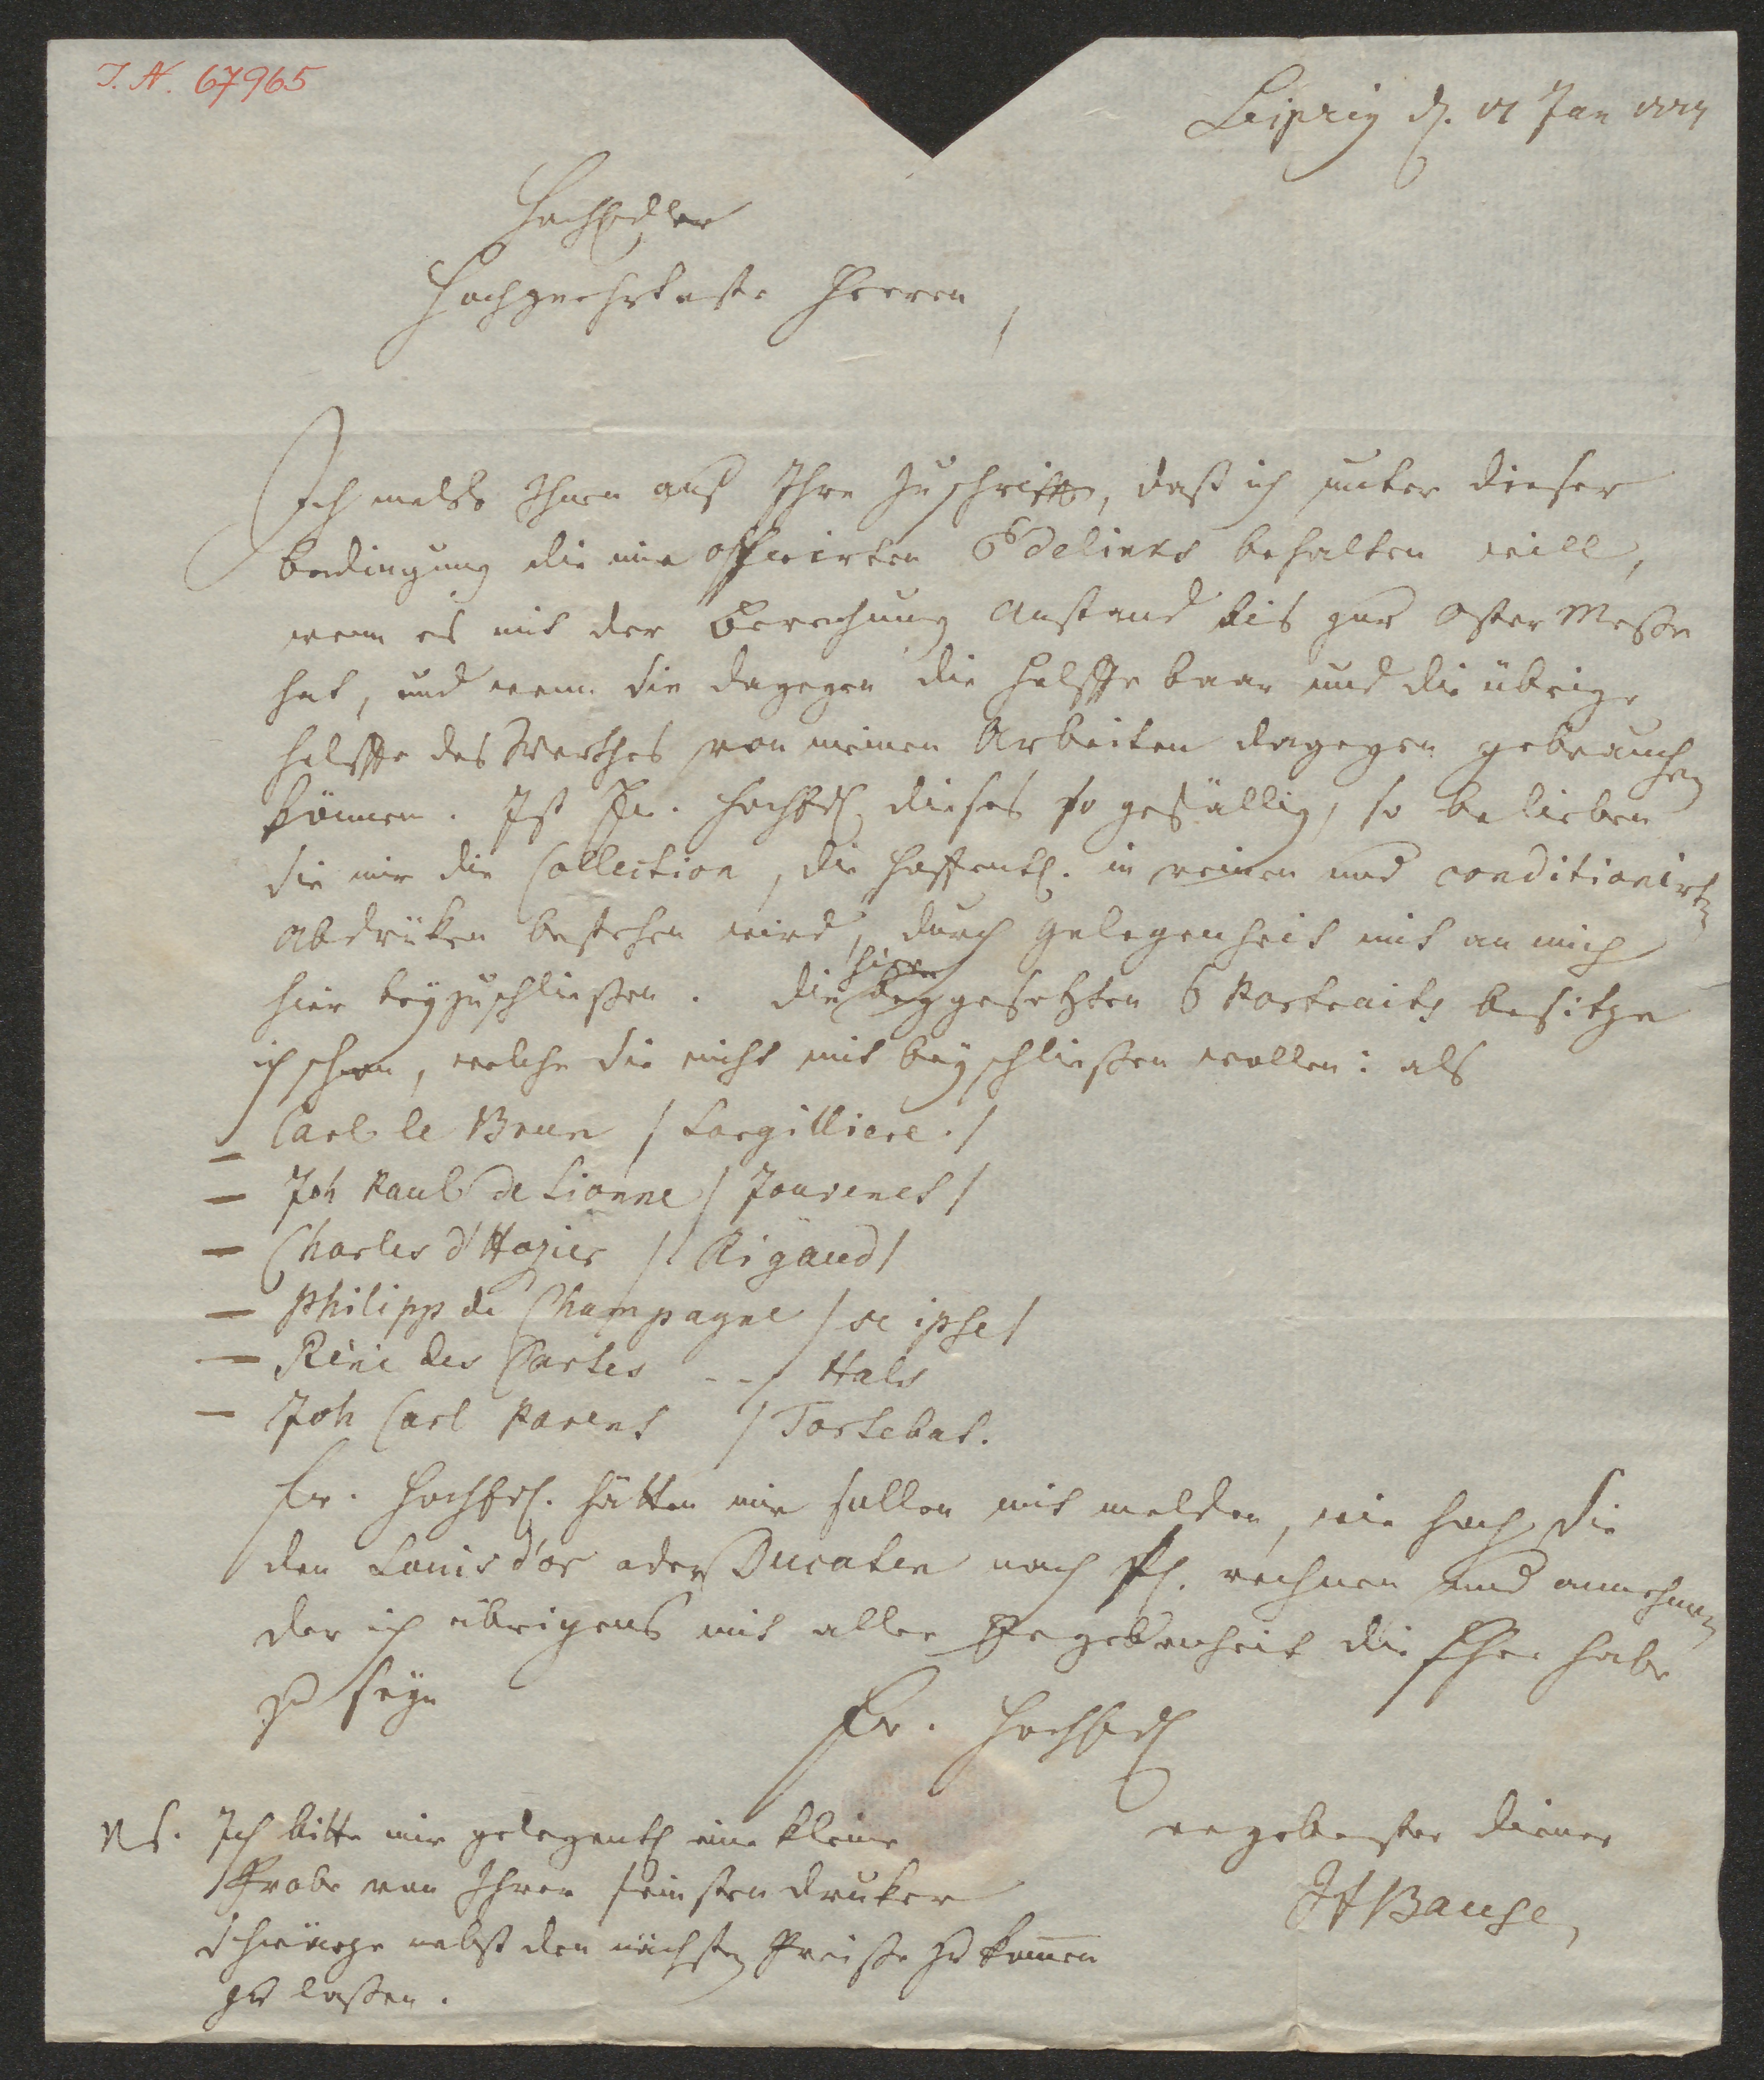 I. N. 67965
Leipzig d. Jan
HochEdler
Hochgeehrteste Herren,
Ich melde Ihnen auf Ihre Zuschrifft, daß ich unter dieser
Bedingung die mir offerirten Edelinks behalten will,
wenn es mit der Berechnung Anstand bis zur Oster Messe
hat, und wenn Sie dagegen die Helffte baar und die übrige
Helffte des Werthes von meinen Arbeiten dagegen gebrauchen
können. Ist Ew. HochEdl dieses so gefällig, so belieben
Sie mir die Collection, die hoffentl. in reinen und conditionirten
Abdrüken bestehen wird, durch Gelegenheit mit an mich
hier beyzuschließen. Die hier beygesetzten 6 Portraits besitze
ich schon, welche Sie nicht mit beyschließen wollen: als
– Carl le Brun / Largilliere. /
– Joh Paul de Lionne / Jouvenet /
– Charles d'Hozier / Rigaud /
– Philipp de Champagne / se ipse /
– Réné des Cartes - - / Hals
– Joh Carl Parent / Tortebat.
Ew. HochEdl. hätten mir sollen mit melden, wie hoch Sie
den Louis d'or oder Ducaten nach fl. rechnen und annehmen
der ich übrigens mit aller Ergebenheit die Ehre habe
zu seyn
Ew. HochEdl
NS. Ich bitte mir gelegentl eine kleine
Probe von Ihrer feinsten Druker
Schwärze nebst den nächsten Preiße zu kommen
zu laßen.
ergebenster Diener
JFBause